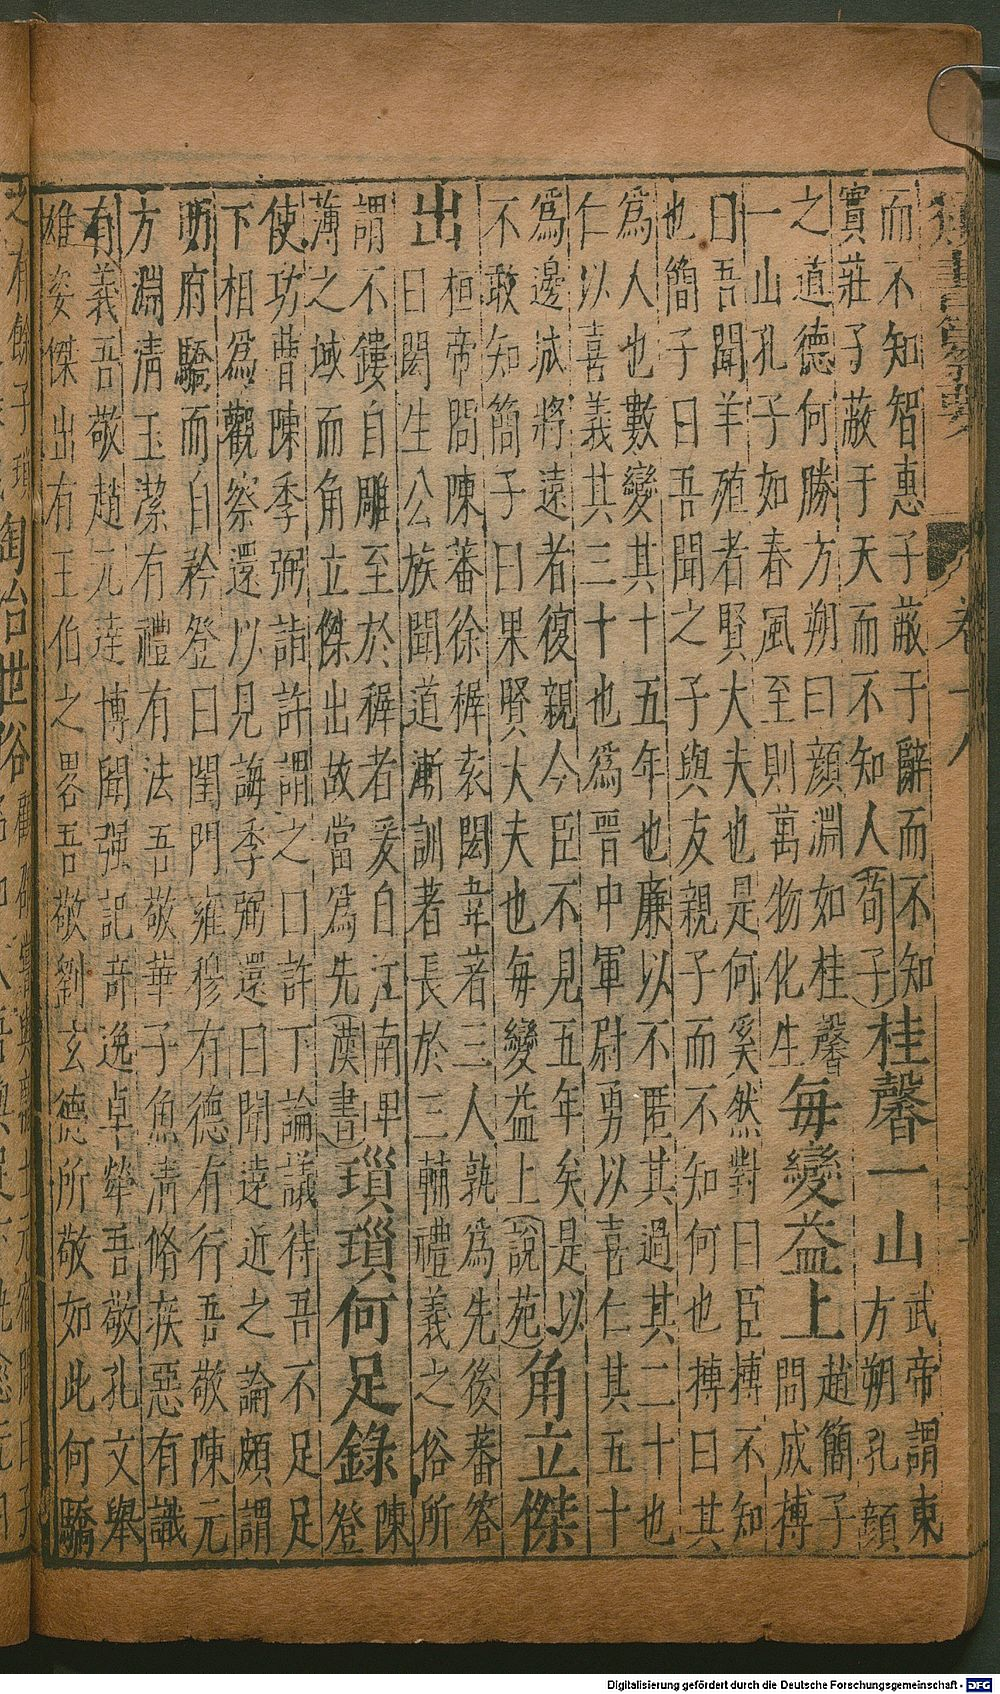 卷十八
而不知智惠子蔽于辭而不知
實莊子蔽于天而不知人（荀子）
桂馨一山
武帝謂東
方朔孔顔
之道德何勝方朔曰顔淵如桂馨
一山孔子如春風至則萬物化生
每變益上
趙簡子
問成摶
曰吾聞羊殖者賢大夫也是何奚然對曰臣摶不知
也簡子曰吾聞之子與友親子而不知何也摶曰其
爲人也數變其十五年也廉以不匿其過其二十也
仁以喜義其三十也爲晋中軍尉勇以喜仁其五十
爲邊城將遠者復親今臣不見五年矣是以
不敢知簡子曰果賢大夫也每變益上（說苑）
角立傑
出
桓帝問陳蕃徐穉袁閎韋著三人孰爲先後蕃答
曰閎生公族聞道漸訓著長於三輔禮義之俗所
謂不鏤自雕至於穉者爰自江南卑
薄之域而角立傑出故當爲先（漢書）
瑣瑣何足錄
陳
登
使功曹陳季弼詣許謂之曰許下論議待吾不足足
下相爲觀察還以見誨季弼還曰聞遠近之論頗謂
明府驕而自矜登曰閨門雍穆有德有行吾敬陳元
方淵清玉潔有禮有法吾敬華子魚清脩疾惡有識
有義吾敬趙元達博聞强記奇逸卓犖吾敬孔文舉
雄姿傑出有王伯之畧吾敬劉玄德所敬如此何驕
陶冶世俗
Digitalisierung gefördert durch die Deutsche Forschungsgemeinschaft - DFG